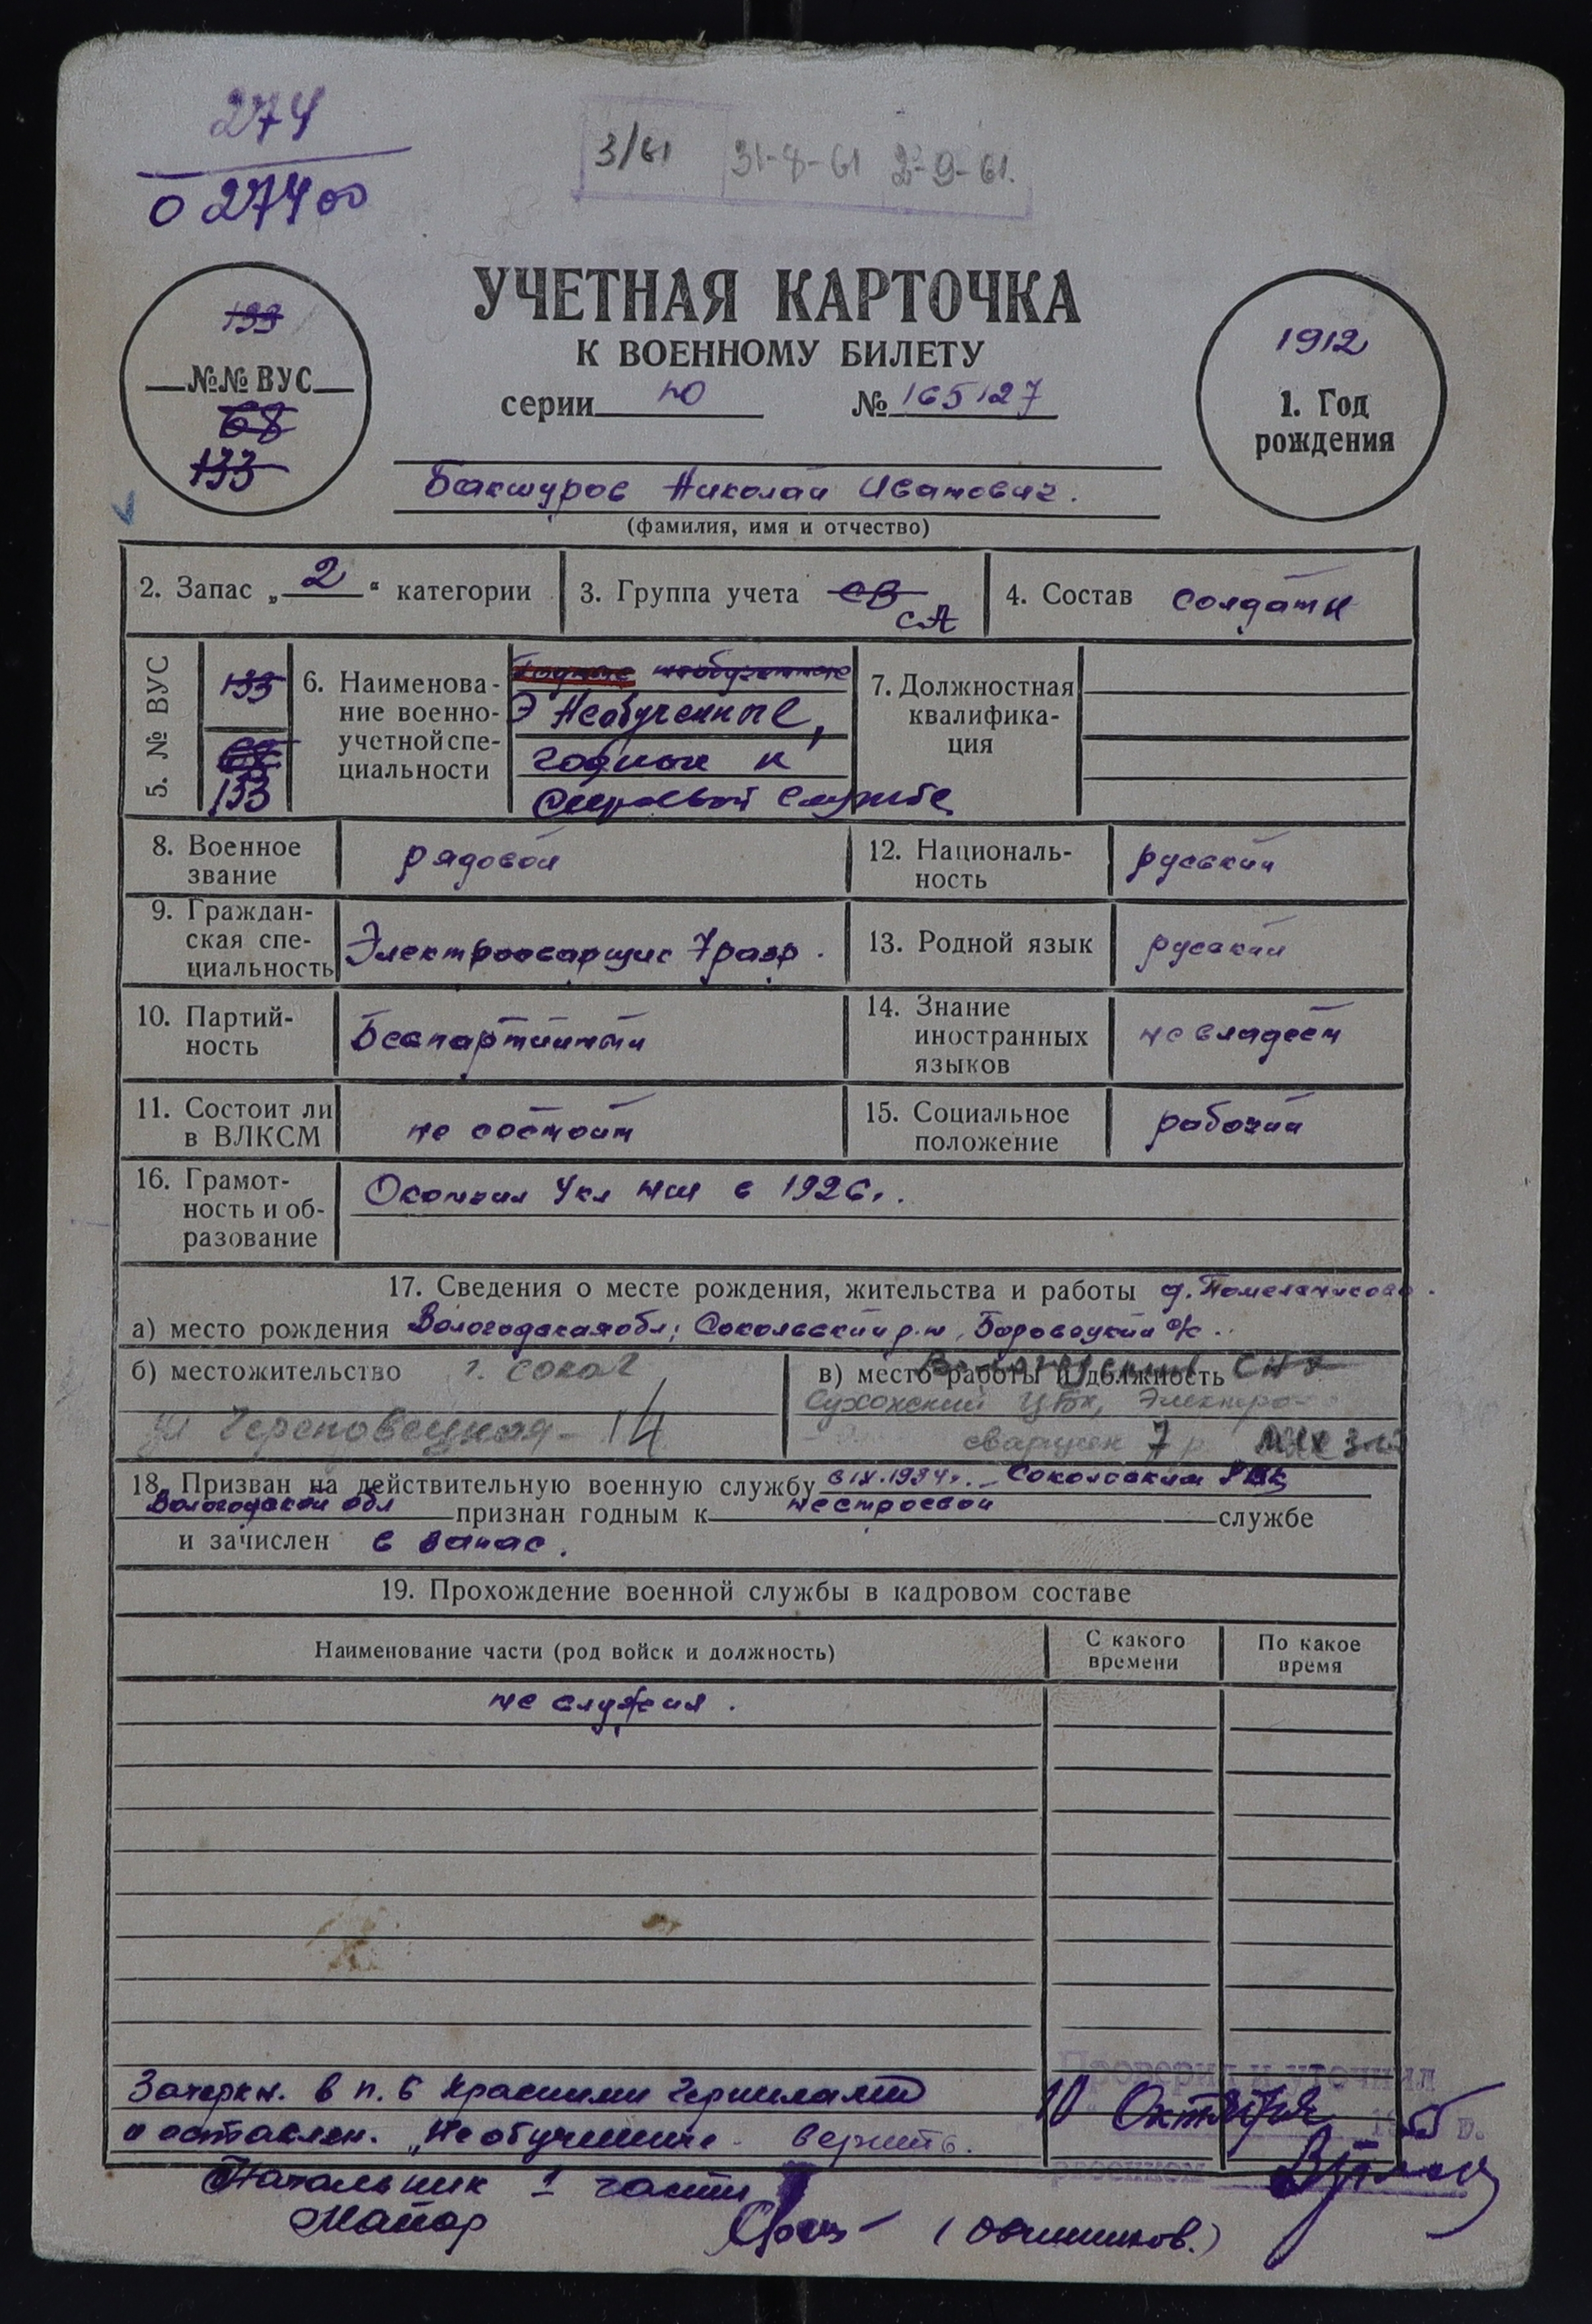 274
0 27400
3/61 31-8-61 2-9-61.
УЧЕТНАЯ КАРТОЧКА
К ВОЕННОМУ БИЛЕТУ
серии Ю № 165127
133
№№ ВУС
68
133
1912
1. Год
рождения
Бакшуров Николай Иванович.
(фамилия, имя и отчество)
2. Запас „ 2 “ категории
3. Группа учета СВ
СА
4. Состав солдаты
5. № ВУС
133
68
133
6. Наименова-
ние военно-
учетной спе-
циальности
Годные необученные
Необученные,
годные к
строевой службе
7. Должностная
квалифика-
ция
8. Военное
звание
рядовой
12. Националь-
ность
русский
9. Граждан-
ская спе-
циальность
Электросварщик 7 разр.
13. Родной язык
русский
10. Партий-
ность
Беспартийный
14. Знание
иностранных
языков
не владеет
11. Состоит ли
в ВЛКСМ
не состоит
15. Социальное
положение
рабочий
16. Грамот-
ность и об-
разование
Окончил 4 кл НСШ в 1926г.
17. Сведения о месте рождения, жительства и работы д.
а) место рождения Вологодская обл; Сокольский р-н, Боровецкий с/с.
б) местожительство г. Сокол
ул Череповецкая - 14
в) место работы и должность
Сухонский ЦБК, Электро-
сварщик 7 р.
18. Призван на действительную военную службу в IX.1934г. Сокольским РВК
Вологодской обл признан годным к нестроевой службе
и зачислен в запас.
19. Прохождение военной службы в кадровом составе
Наименование части (род войск и должность)
С какого
времени
По какое
время
не служил.
Зачеркн. в п. 6 красными чернилами
и оставлен. „Необученные верить.
Проверил и уточнил
10 Октября 1955 г.
Начальник 1 части
Майор
(Овчинников.)